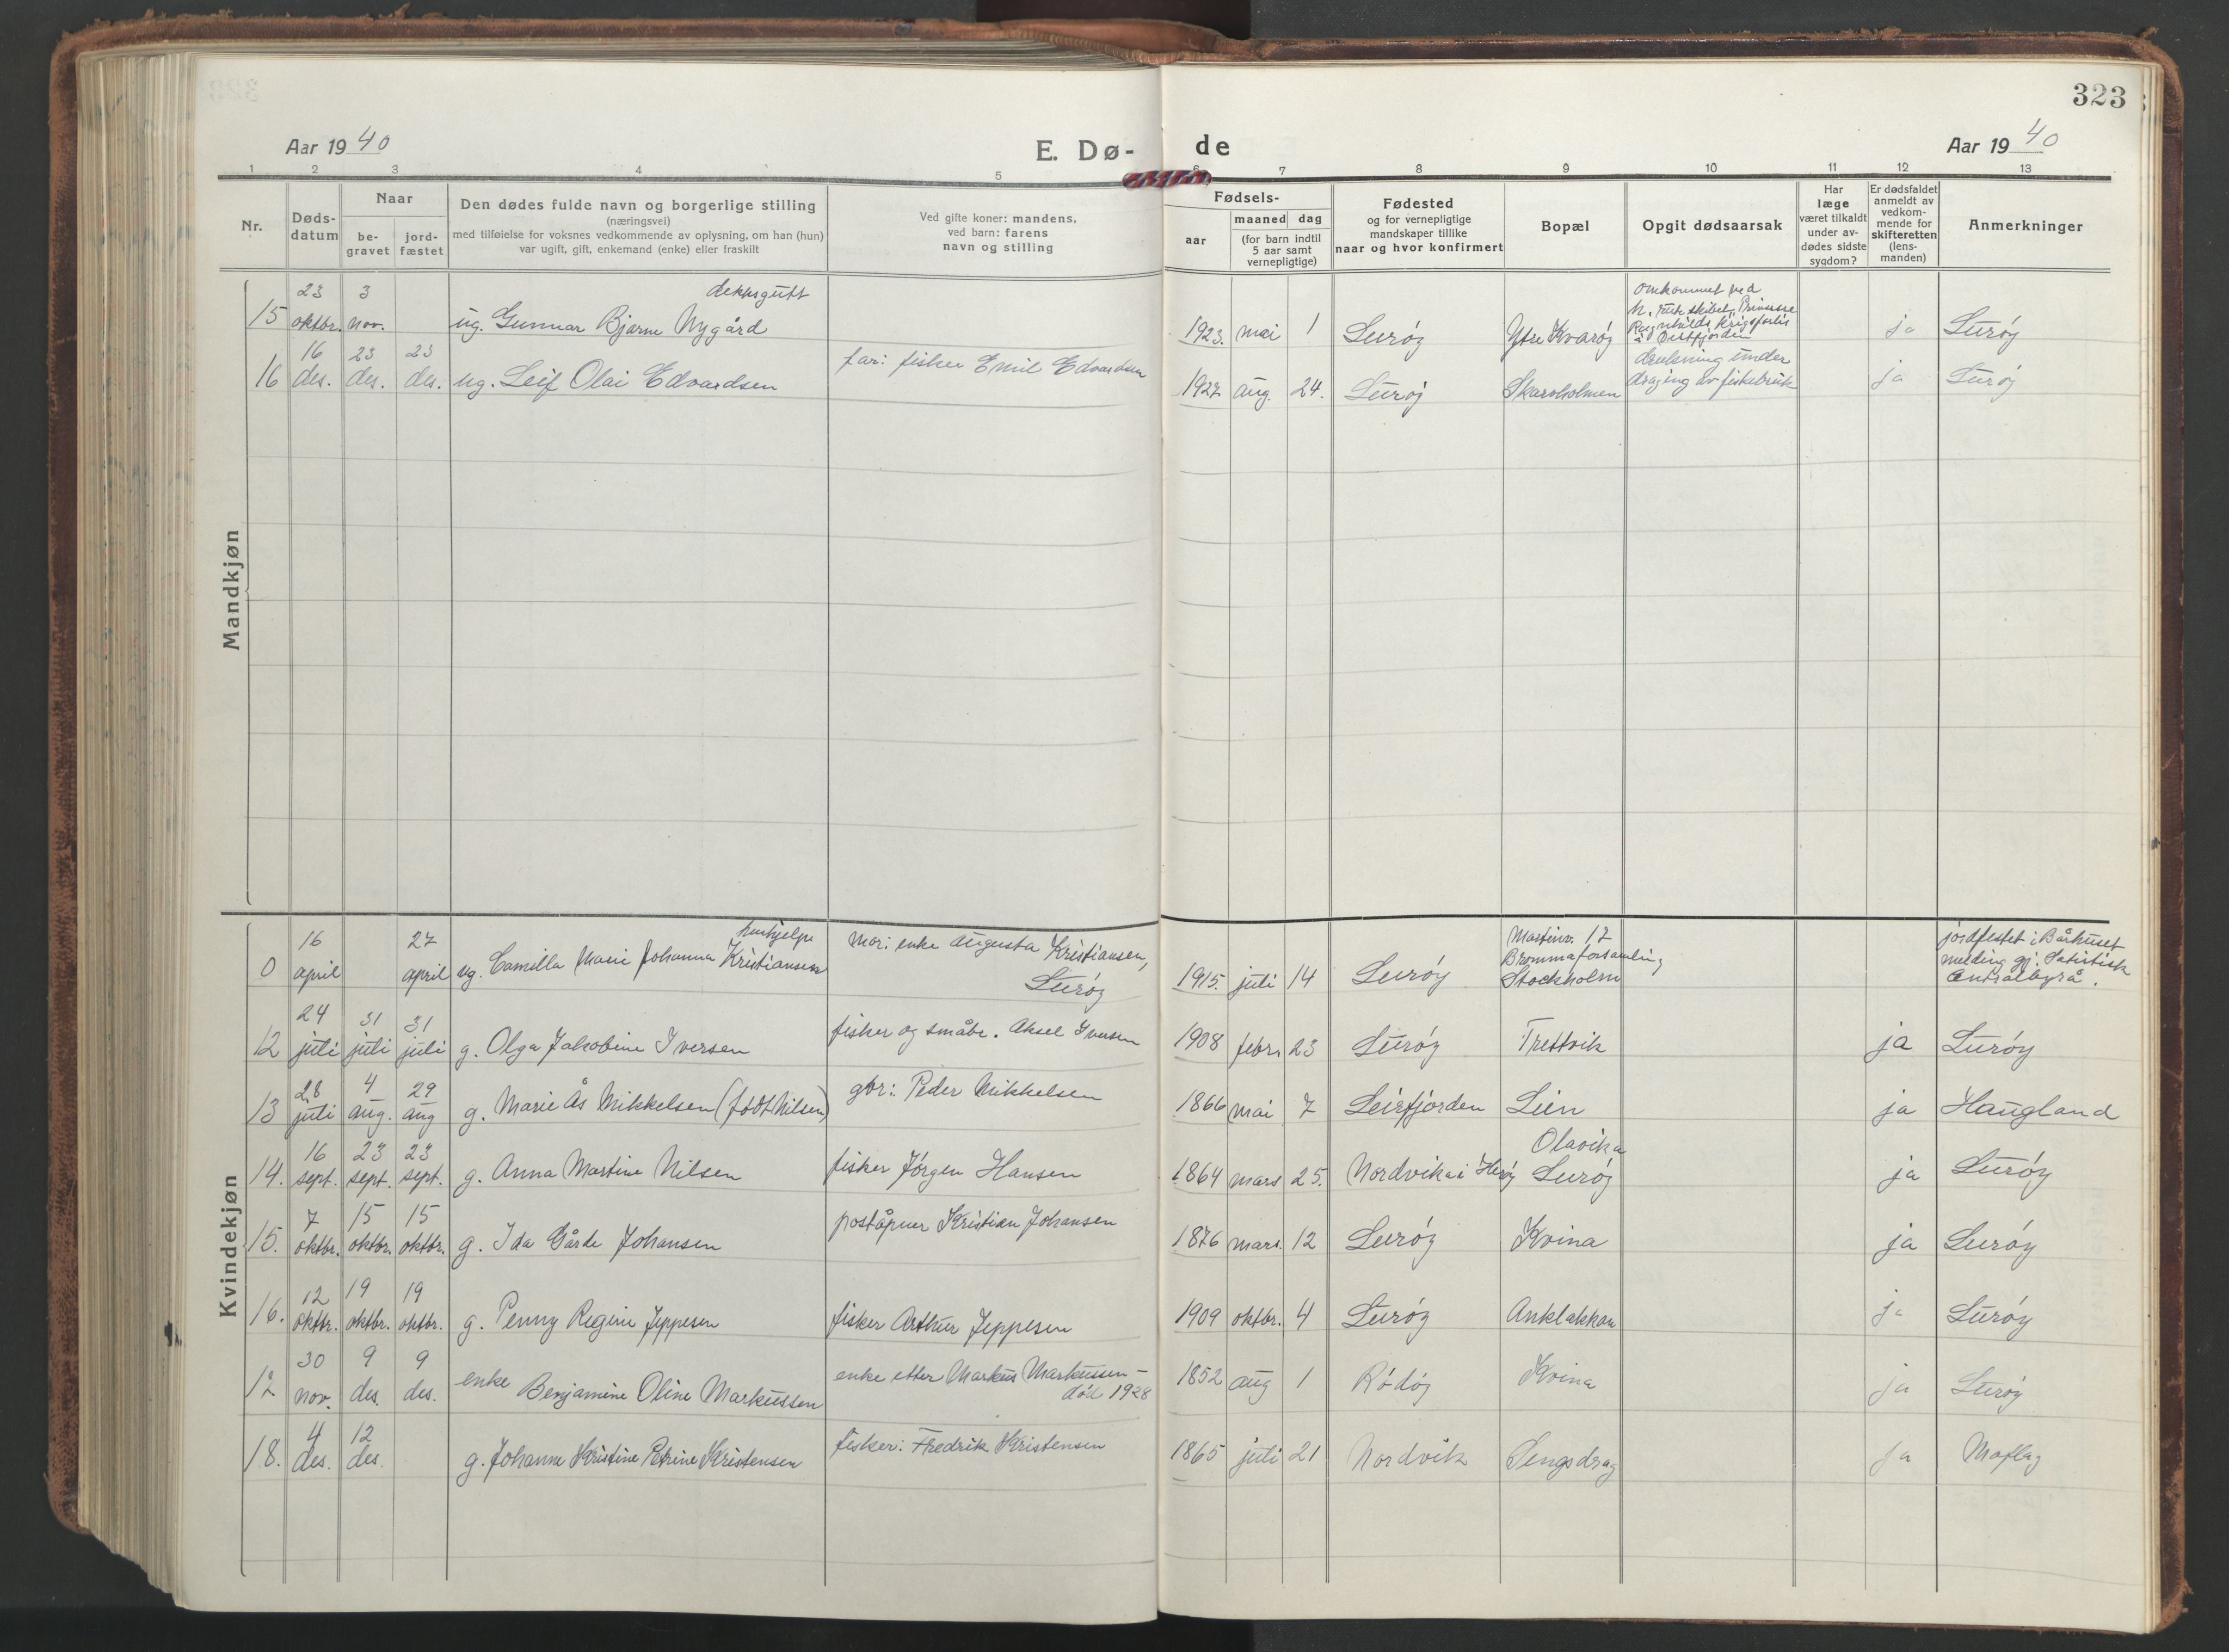 323
Aar 1940
E. Dø-
de
Aar 1940
1 2 3 4 5 6 7 8 9 10 11 12 13
Nr.
Døds-
datum
Naar
be-
gravet
jord-
fæstet
Den dødes fulde navn og borgerlige stilling
(næringsvei)
med tilføielse for voksnes vedkommende av oplysning, om han (hun)
var ugift, gift, enkemand (enke) eller fraskilt
Ved gifte koner: mandens,
ved barn: farens
navn og stilling
Fødsels-
aar
maaned dag
(for barn indtil
5 aar samt
vernepligtige)
Fødested
og for vernepligtige
mandskaper tillike
naar og hvor konfirmert
Bopæl
Opgit dødsaarsak
Har
læge
været tilkaldt
under av-
dødes sidste
sygdom?
Er dødsfaldet
anmeldt av
vedkom-
mende for
skifteretten
(lens-
manden)
Anmerkninger
Mandkjøn
15
23
oktbr.
3
nov.
dekksgutt
ug. Gunnar Bjarne Nygård
1923. mai 1
Lurøy
Ytre Kvarøy
omkommet ved
h. ruteskibet "Prinsesse
Ragnhilds krigsforlis
i Vestfjorden
ja
Lurøy
16
16
des.
23
des.
23
des.
ug. Leif Olai Edvardsen
far: fisker Emil Edvardsen
1927 aug. 24.
Lurøy
Skarvholmen
drukning under
draging av fiskebruk
ja
Lurøy
Kvindekjøn
0
16
april
27
april
hushjelp
ug. Camilla Marie Johanna Kristiansen
mor: enke Augusta Kristiansen,
Lurøy
1915. juli 14
Lurøy
Martinv. 17
Bromma forsamling
Stockholm
jordfestet i Bårhuset
melding gj. Statistisk
Centralbyrå.
12
24
juli
31
juli
31
juli
g. Olga Jakobine Iversen
fisker og småbr. Aksel Iversen
1908 febr. 23
Lurøy
Trettvik
ja
Lurøy
13
28
juli
4
aug.
29
aug
g. Marie Ås Mikkelsen (født Nilsen)
gbr: Peder Mikkelsen
1866 mai 7
Leirfjorden
Lien
ja
Haugland
14.
16
sept.
23
sept.
23
sept.
g. Anna Martine Nilsen
fisker Jørgen Hansen
1864 mars 25.
Nordvika i Herøy
Olavika
Lurøy
ja
Lurøy
15.
7
oktbr.
15
oktbr.
15
oktbr.
g. Ida Gårde Johansen
poståpner Kristian Johansen
1876 mars. 12
Lurøy
Kvina
ja
Lurøy
16.
12
oktbr.
19
oktbr.
19
oktbr.
g. Penny Regine Jeppesen
fisker Arthur Jeppesen
1909 oktbr. 4
Lurøy
Anklakkan
ja
Lurøy
17
30
nov.
9
des.
9
des.
enke Benjamine Oline Markussen
enke etter Markus Markussen -
død 1928
1852 aug 1
Rødøy
Kvina
ja
Lurøy
18.
4
des.
12
des.
g. Johanne Kristine Petrine Kristensen
fisker: Fredrik Kristensen
1865 juli 21
Nordvik
Sengsdrag
ja
Moflag